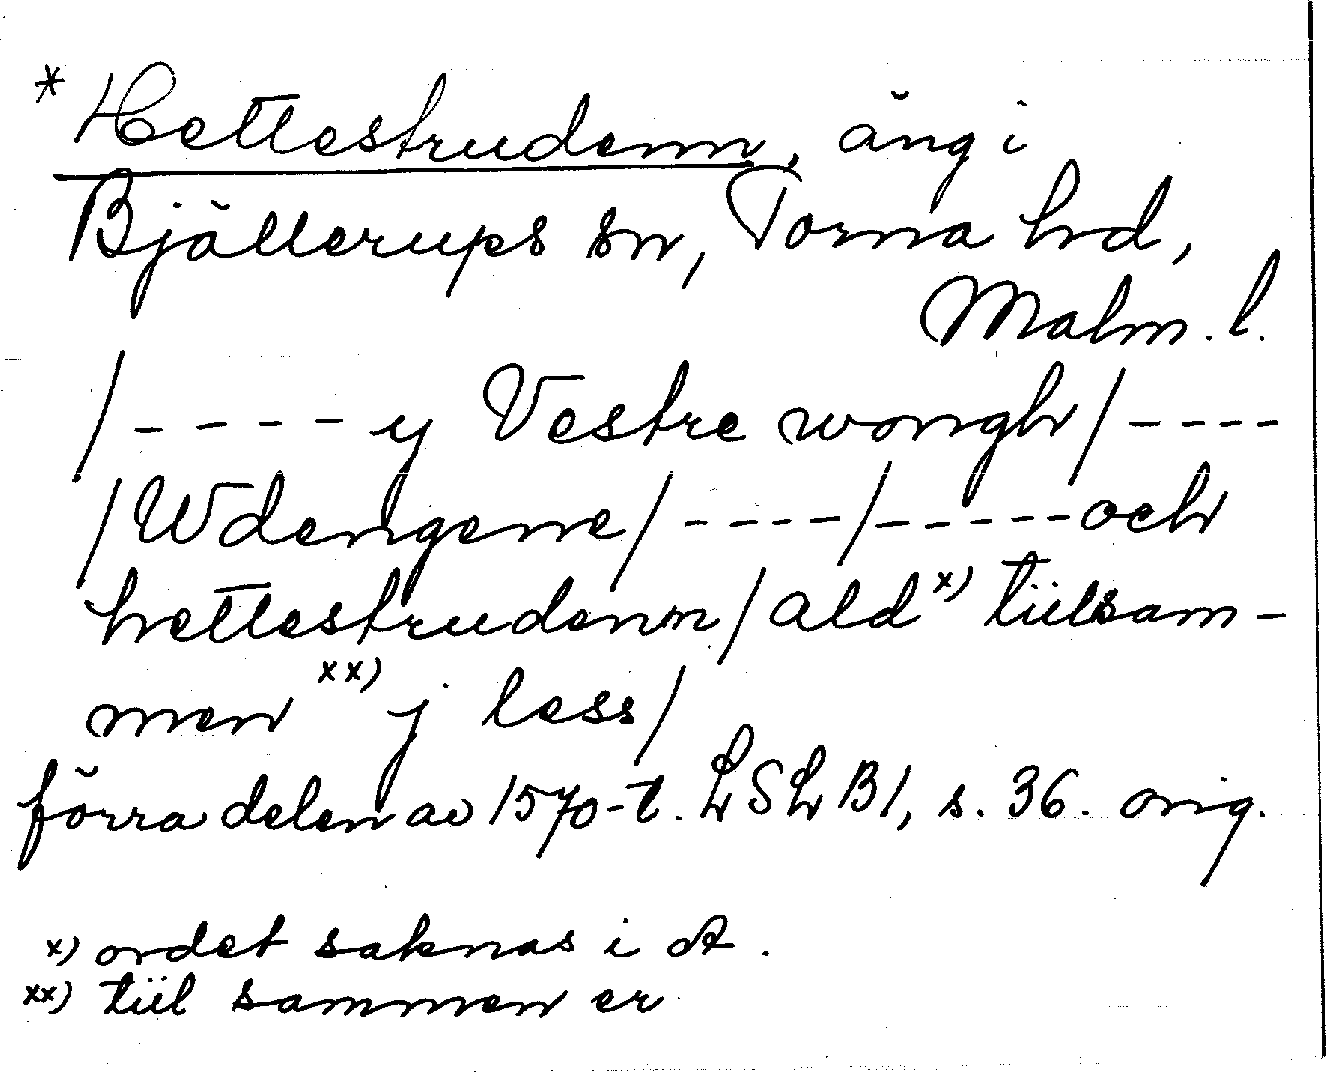 * Hettestrudenn, äng i
Bjällerups sn, Torna hd,
Malm. l.
/----- y Vestre wongh/----
/Wdengenne/----/-----och
hettestrudenn/ald x) tiilsam-
men xx) j less/
förra delen av 1570-t. LSLB1, s. 36. orig.
x) ordet saknas i A.
xx) tiil sammen er